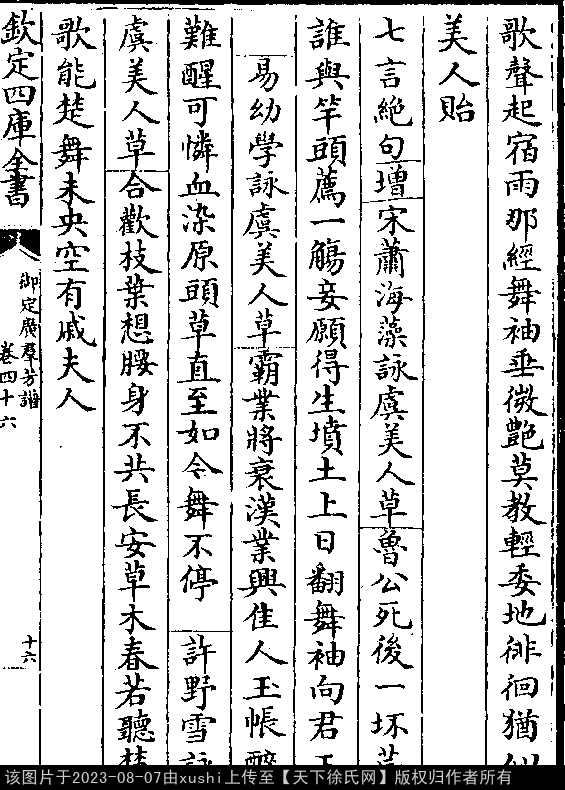 歌聲起宿雨那經舞袖垂微艶莫教輕委地徘徊猶
美人貽
七言絕句增宋蕭海藻詠虞美人草魯公死後一坏
誰與竿頭薦一觴妾願得生墳土上日翻舞袖向君
易幼學詠虞美人草霸業將衰漢業興佳人玉帳醉
難醒可憐血染原頭草直至如今舞不停 許野雪詠
虞美人草合歡枝葉想腰身不共長安草木春若聽楚
歌能楚舞未央空有戚夫人
欽定四庫全書
御定廣羣芳譜
卷四十六
十六
该图片于2023-08-07由xushi上传至【天下徐氏网】版权归作者所有